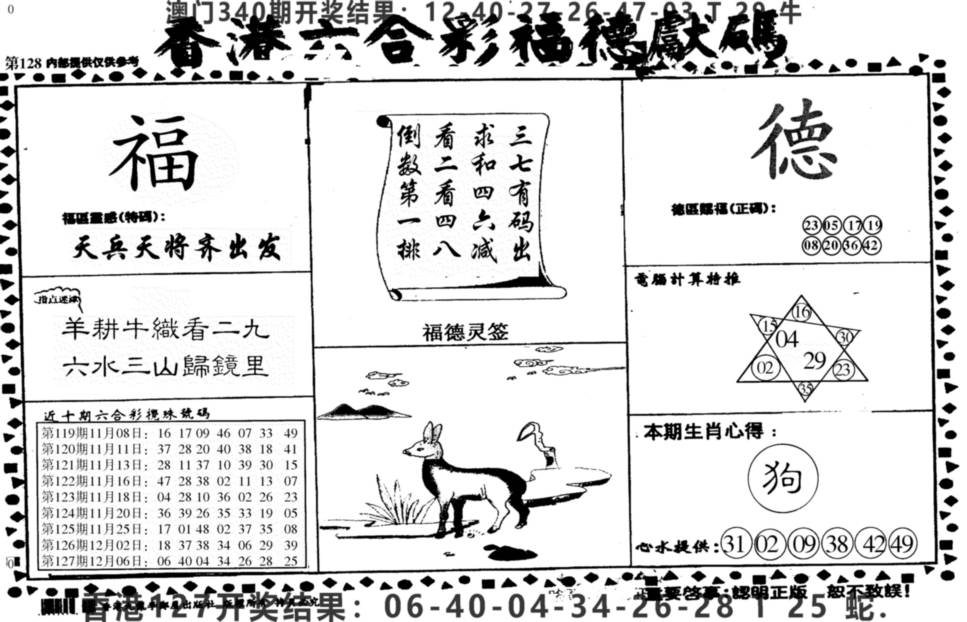 澳门340期开奖结果：12-40-27-26-47-03 T 29 牛
香港六合彩福德獻碼
第128 内部提供仅供参考
福
福區靈感(特碼)：
天兵天将齐出发
指点迷津
羊耕牛織看二九
六水三山歸鏡里
近十期六合彩攪珠號碼
第119期11月08日：16 17 09 46 07 33 49
第120期11月11日：37 28 20 40 38 18 41
第121期11月13日：28 11 37 10 39 30 15
第122期11月16日：47 28 38 02 11 13 07
第123期11月18日：04 28 10 36 02 26 23
第124期11月20日：36 39 26 35 33 19 05
第125期11月25日：17 01 48 02 37 35 08
第126期12月02日：18 37 38 34 06 29 39
第127期12月06日：06 40 04 34 26 28 25
三七有码出
求和四六减
看二看四八
倒数第一排
福德灵签
德
德區賜福(正碼)：
23 05 17 19
08 20 36 42
電腦計算特推
16
15 04 30
02 29 23
35
本期生肖心得：
狗
心水提供：31 02 09 38 42 49
重要啓事：認明正版 恕不致誤！
香港127开奖结果：06-40-04-34-26-28 T 25 蛇.